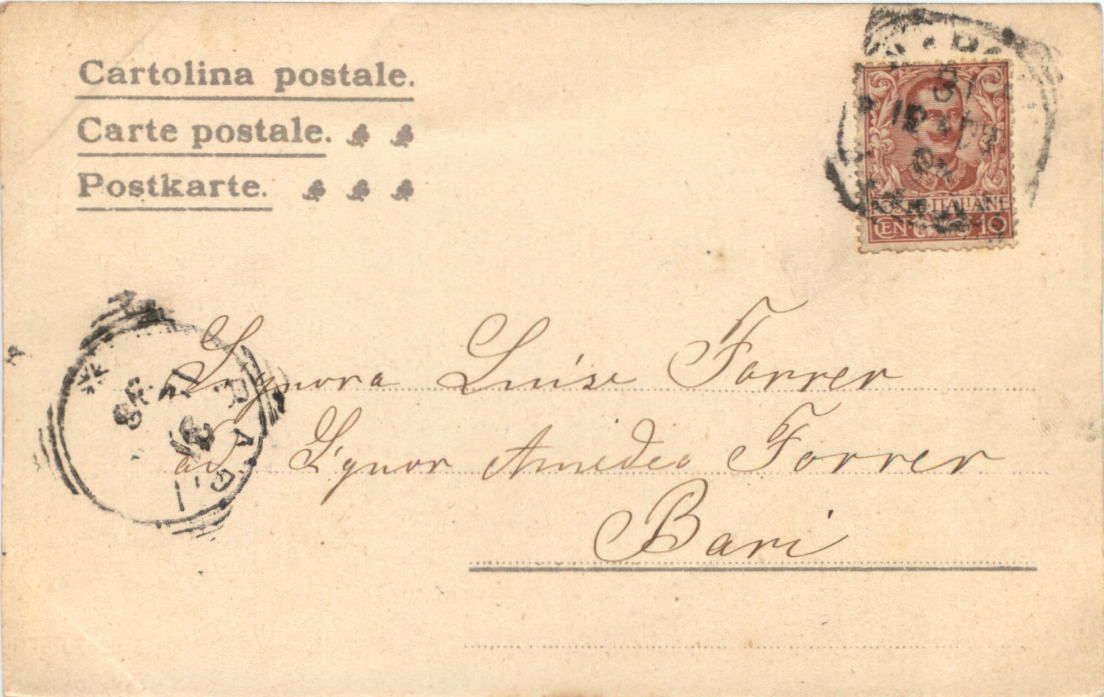 Cartolina postale.
Carte postale.
Postkarte.
POSTE ITALIANE
CEN. 10
BARI
Signora Luise Forrer
ad Signor Amedeo Forrer
Bari